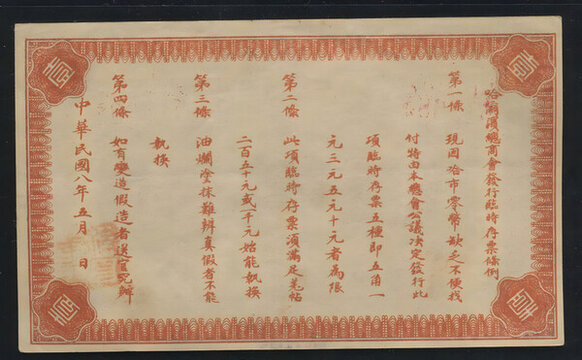 哈爾濱總商會發行臨時存票條例
第一條 現因哈市零幣缺乏不便找
付特由本總會公議決定發行此
項臨時存票五種即五角一
元三元五元十元者爲限
第二條 此項臨時存票須滿足羌帖
二百五十元或一千元始能執換
第三條 油爛塗抹難辨真假者不能
執換
第四條 如有變造假造者送官究辦
中華民國八年五月 日
壹
壹
壹
壹